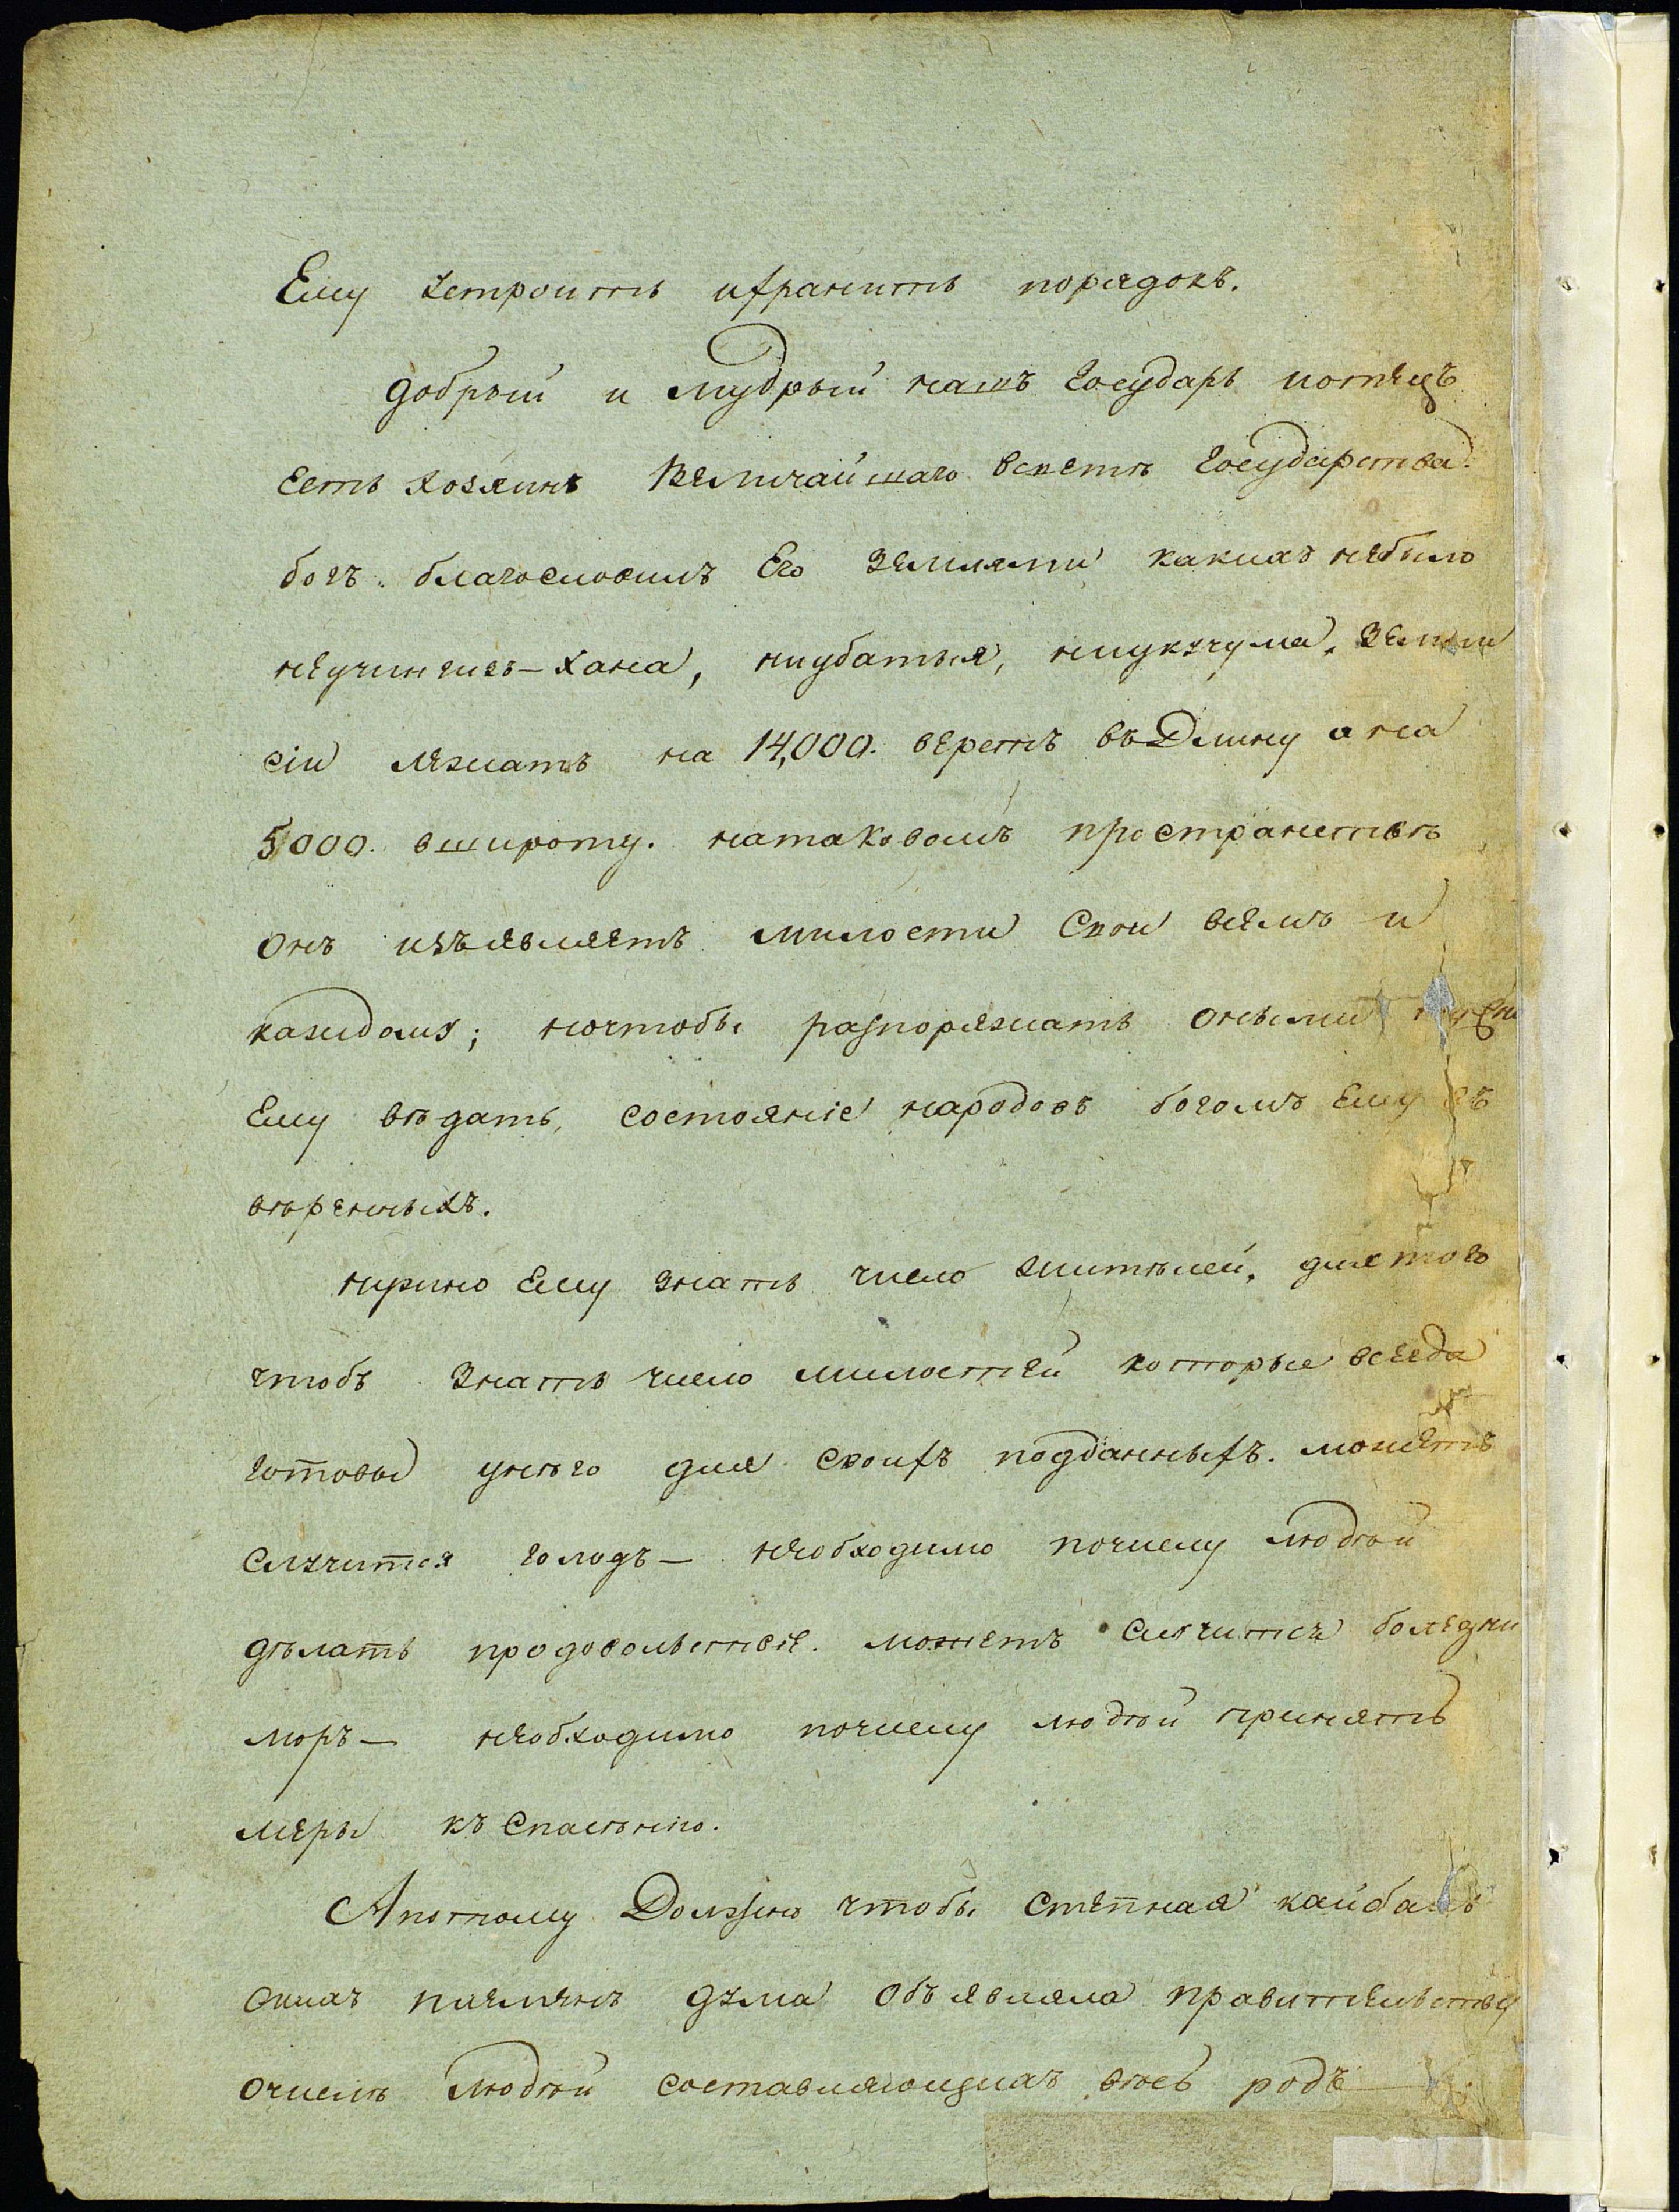 Ему устроить ихранить порядокъ.
Добрый и мудрый нашъ Государь иотецъ
есть хозяинъ Величайшаго всвете Государства.
богъ. благословилъ Его землями какихъ небыло
неучингисъ-Хана, ниубатыя, ниукучума. Земли
сіи лежатъ на 14,000. верстъ въДлину а на
5,000. вшироту. натаковомъ пространстве
онъ изъявляетъ милости Свои всемъ и
каждому; ночтобы разпоряжать оными
Ему вѣдать, состояніе народовъ богомъ Ему въ
вѣренныхъ.
нужно Ему знать число жителей, длятого
чтобъ знать число милостей которые всегда
готовы унего для своихъ подданныхъ. можетъ
случится голодъ — необходимо почислу людей
дѣлать продовольствіе. можетъ случится болезни
моръ — необходимо почислу людей принять
меры къ спасенію.
Апотому Должно чтобы степная кайбал
скихъ племенъ дума объявляла правительству
очисле людей составляющихъ весь родъ